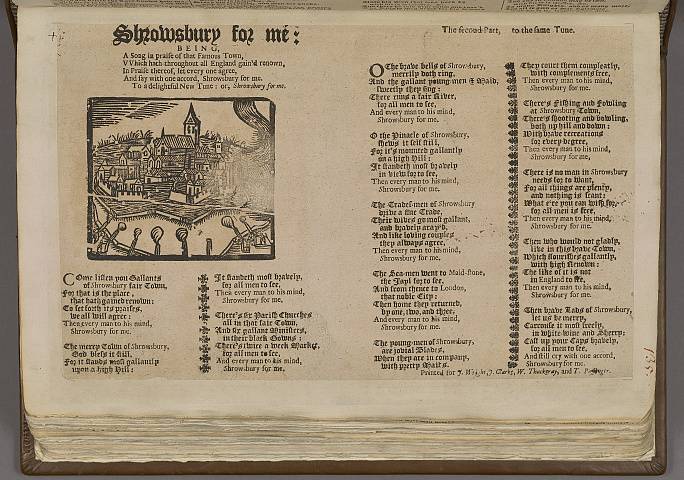 Shrowsbury for me:
BEING,
A Song in praise of that Famous Town,
VVhich hath throughout all England gain'd renown,
In Praise thereof, let every one agree,
And say with one accord, Shrowsbury for me.
To a delightful New Tune: or, Shrowsbury for me.
COme listen you Gallants
of Shrowsbury fair Town,
For that is the place,
that hath gained renown:
To set forth its praises,
we all will agree:
Then every man to his mind,
Shrowsbury for me.
The mercy Town of Shrowsbury,
God bless it still,
For it stands most gallantly
upon a high Hill:
It standeth most bravely,
for all men to see,
Then every man to his mind,
Shrowsbury for me.
There's six Parish Churches
all in that fair Town,
And six gallant Ministers,
in their black Gowns:
There's twice a week Market,
for all men to see,
And every man to his mind,
Shrowsbury for me.
The second Part, to the same Tune.
O The brave bells of Shrowsbury,
merrily doth ring,
And the gallant young-men & Maid,
sweetly they sing:
There runs a fair River,
for all men to see,
And every man to his mind,
Shrowsbury for me.
O the Pinacle of Shrowsbury,
shews it self still,
For it's mounted gallantly
on a high Hill:
It standeth most bravely
in view for to see,
Then every man to his mind,
Shrowsbury for me.
The Trades-men of Shrowsbury
drive a fine Trade,
Their wives go most gallant,
and bravely array'd.
And like loving couples
they always agree,
Then every man to his mind,
Shrowsbury for me.
The Sea-men went to Maid-stone,
the Jayl for to see,
And from thence to London,
that noble City:
Then home they returned,
by one, two, and three.
And every man to his mind,
Shrowsbury for me.
The young-men of Shrowsbury,
are jovial Blades,
When they are in company,
with pretty Maids.
They court them compleatly,
with complements free,
Then every man to his mind,
Shrowsbury for me.
There's Fishing and Fowling
at Shrowsbury Town,
There's shooting and bowling,
both up hill and down:
With brave recreations
for every degree,
Then every man to his mind,
Shrowsbury for me,
There is no man in Shrowsbury
needs for to want,
For all things are plenty,
and nothing is scant:
What e're you can wish for,
for all men is free,
Then every man to his mind,
Shrowsbury for me.
Then who would not gladly,
live in this brave Town,
Which flourishes gallantly,
with high Renown:
The like of it is not
in England to see,
Then every man to his mind,
Shrowsbury for me.
Then brave Lads of Shrowsbury,
let us be merry,
Carrouse it most freely,
in white-wine and Sherry:
Cast up your Caps bravely,
for all men to see,
And still cry with one accord,
Shrowsbury for me.
Printed for J. Wright, J. Clarke, W. Thackeray, and T. Passinger.